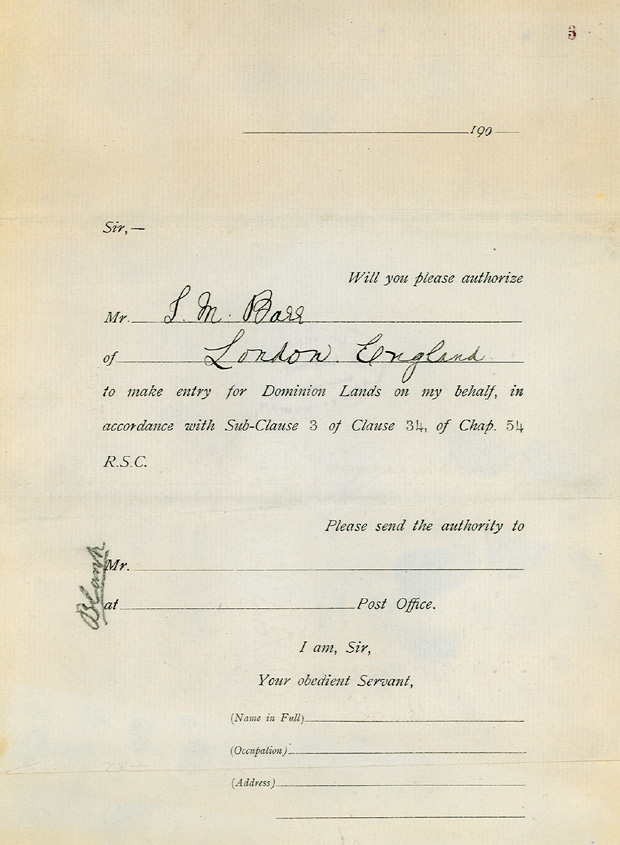 5
190
Sir,—
Will you please authorize
Mr. I. M. Barr
of London. England
to make entry for Dominion Lands on my behalf, in
accordance with Sub-Clause 3 of Clause 34, of Chap. 54
R.S.C.
Please send the authority to
Blank
Mr.
at Post Office.
I am, Sir,
Your obedient Servant,
(Name in Full)
(Occupation)
(Address)